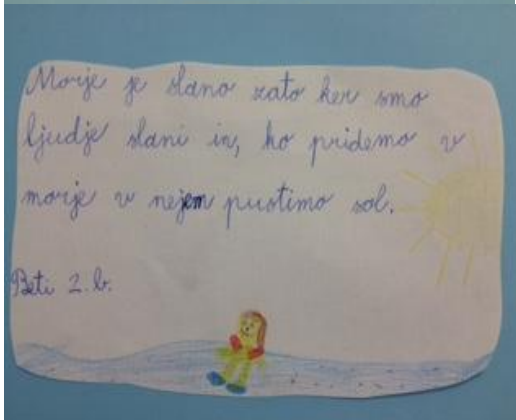 Morje je slano zato ker smo
ljudje slani in, ko pridemo v
morje v nejem pustimo sol.
Beti 2. b.